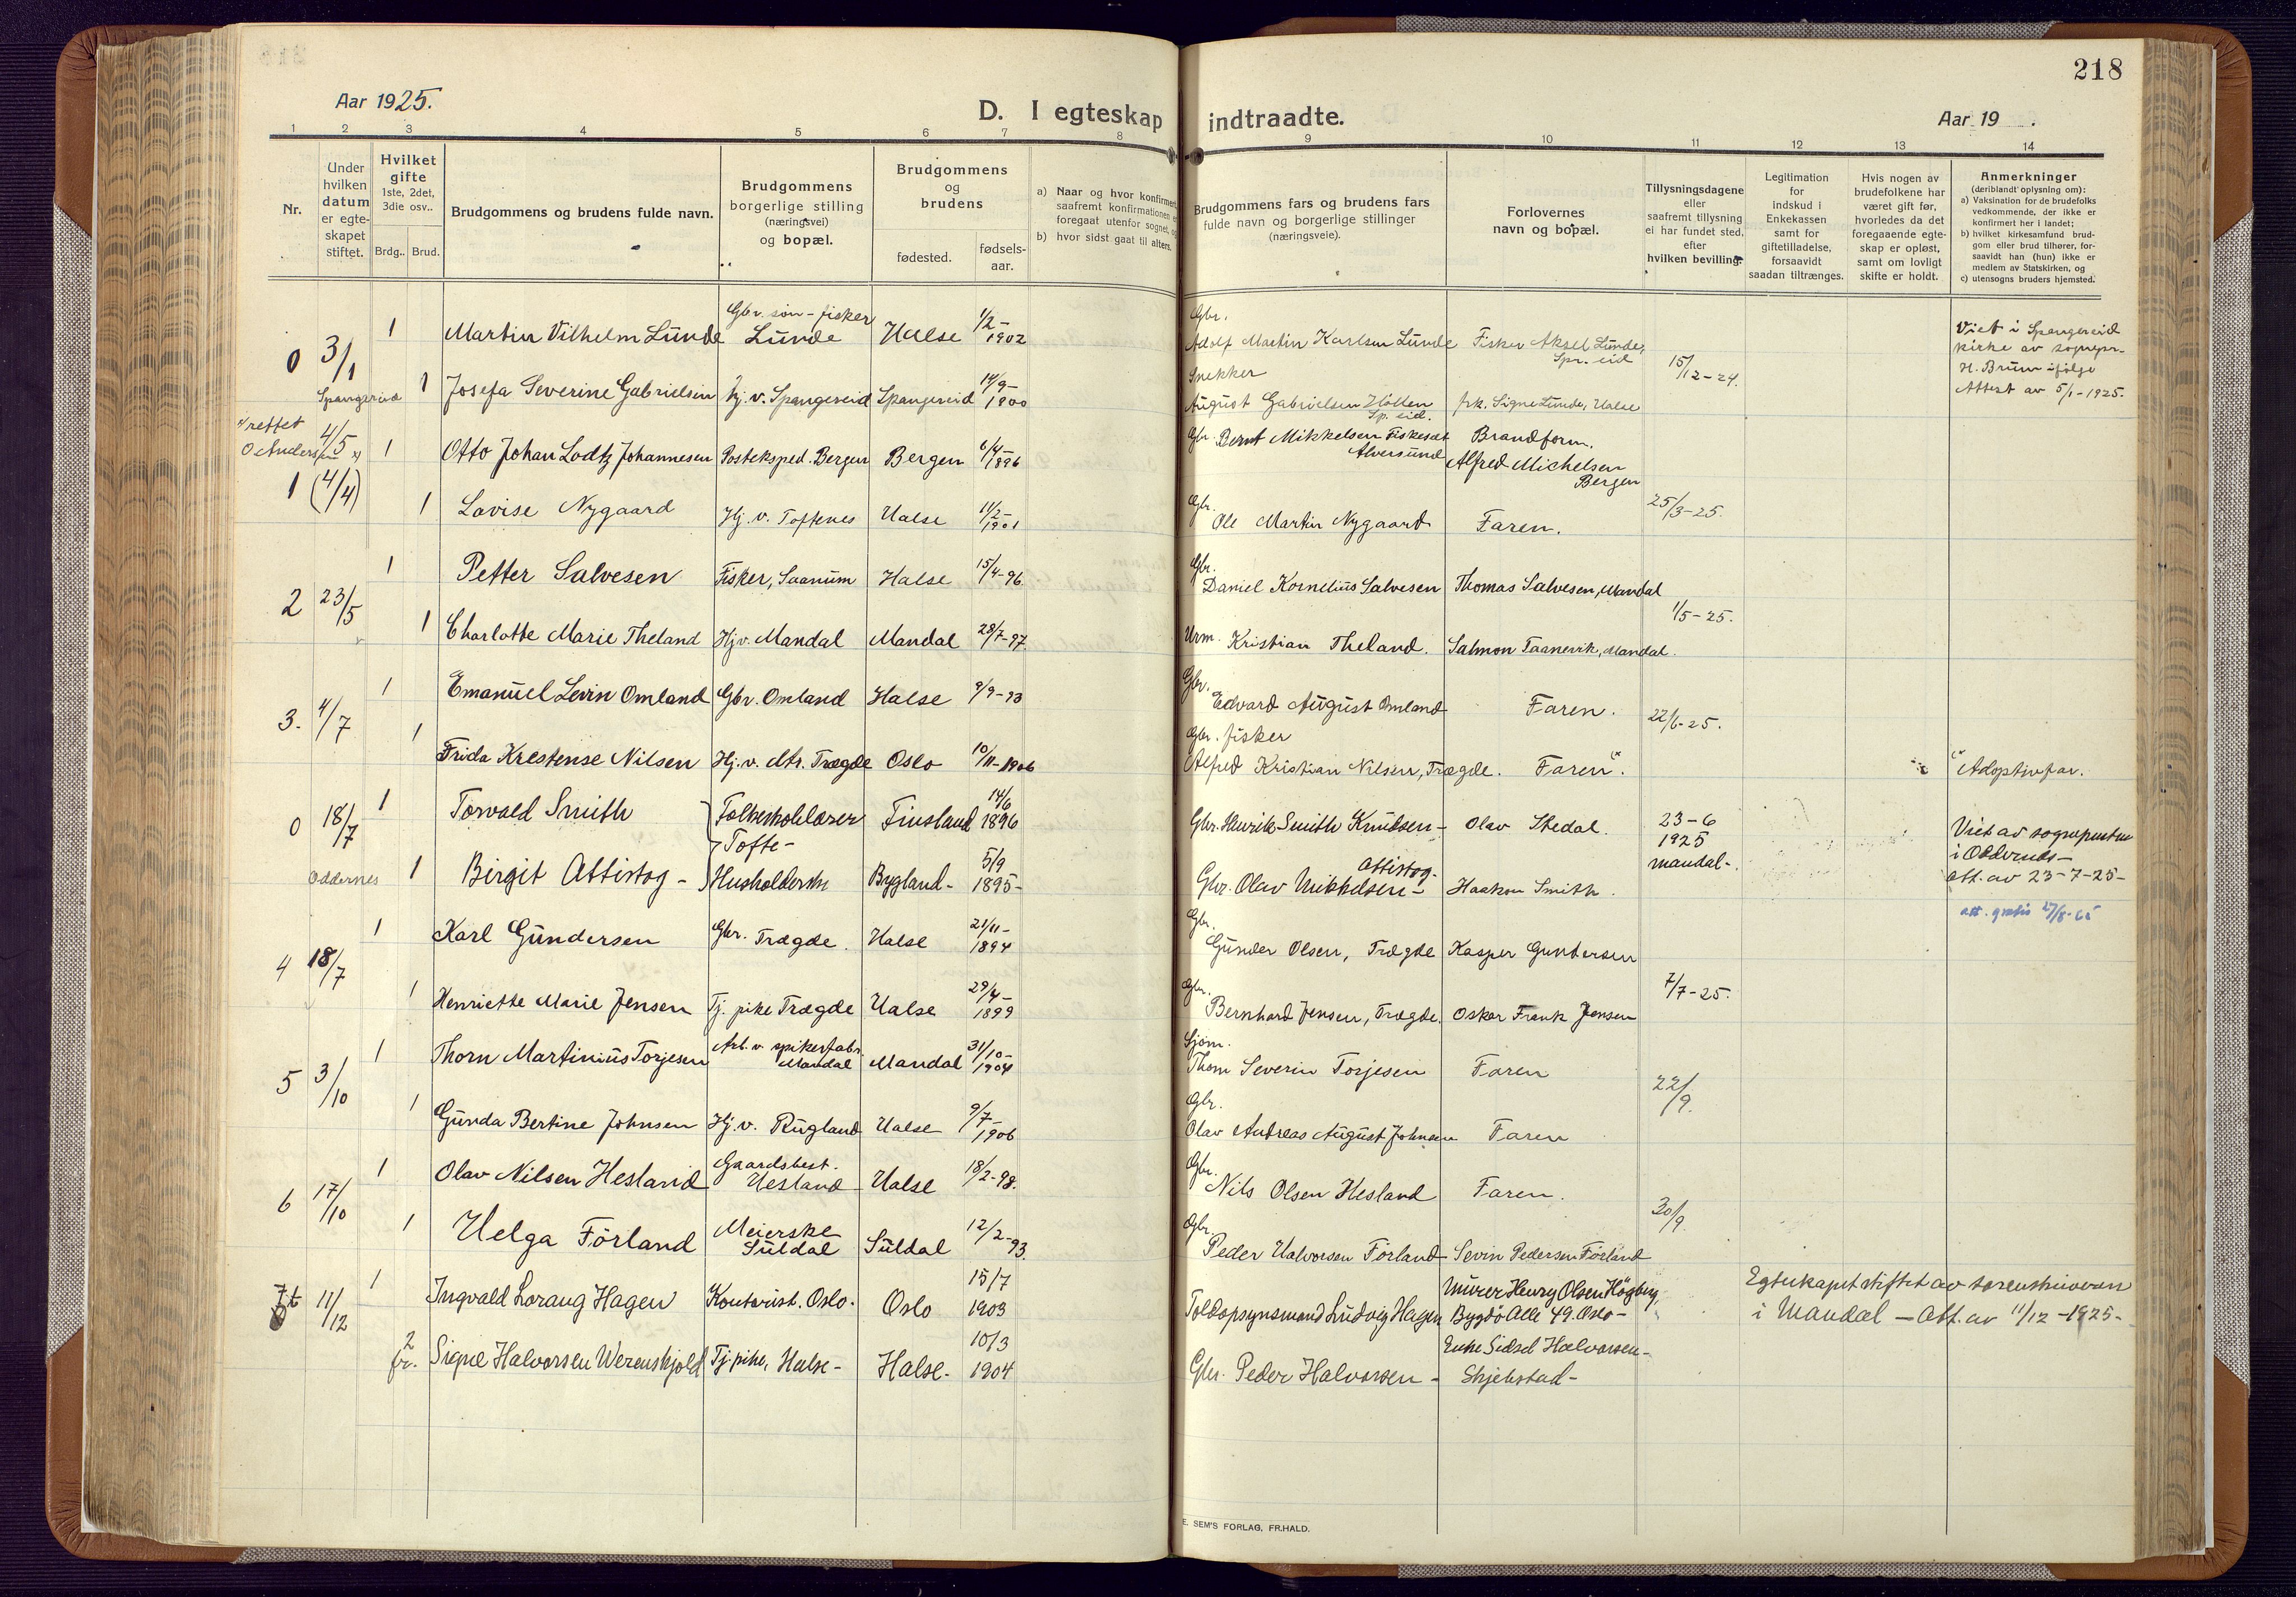 218
Aar 1925.
D. I egteskap indtraadte.
Aar 19 .
1 2 3 4 5 6 7 8 9 10 11 12 13 14
Nr.
Under
hvilken
datum
er egte-
skapet
stiftet.
Hvilket
gifte
1ste, 2det,
3die osv..
Brdg.. Brud.
Brudgommens og brudens fulde navn.
Brudgommens
borgerlige stilling
(næringsvei)
og bopæl.
Brudgommens
og
brudens
fødested.
fødsels-
aar.
a) Naar og hvor konfirmert
saafremt konfirmationen er
foregaat utenfor sognet, og
b) hvor sidst gaat til alters.
Brudgommens fars og brudens fars
fulde navn og borgerlige stillinger
(næringsveie).
Forlovernes
navn og bopæl.
Tillysningsdagene
eller
saafremt tillysning
ei har fundet sted,
efter
hvilken bevilling.
Legitimation
for
indskud i
Enkekassen
samt for
giftetilladelse,
forsaavidt
saadan tiltrænges.
Hvis nogen av
brudefolkene har
været gift før,
hvorledes da det
foregaaende egte-
skap er opløst,
samt om lovligt
skifte er holdt.
Anmerkninger
(deriblandt oplysning om):
a) Vaksination for de brudefolks
vedkommende, der ikke er
konfirmert her i landet;
b) hvilket kirkesamfund brud-
gom eller brud tilhører, for-
saavidt han (hun) ikke er
medlem av Statskirken, og
c) utensogns bruders hjemsted.
0 3/1 1 Martin Vilhelm Lunde Gbr. søn - fisker Lunde Halse 1/2-1902 Gbr. Adolf Martin Karlsen Lunde Fisker Aksel Lunde, Spr. eid 15/12-24.
Viet i Spangereid
kirke av sognepr.
H. Bruun ifølge
Attest av 5/1-1925.
Spangereid 1 Josefa Severine Gabrielsen Hj. v. Spangereid Spangereid 14/9-1900 Snekker August Gabrielsen Hølten Sp. eid. frk. Signe Lunde, Halse
rettet
O Andersen 4/5 1 Otto Johan Lodtz Johannesen Posteksped. Bergen Bergen 6/4-1896 Gbr. Bernt Mikkelsen Fiskeset Alversund Brandform. Alfred Michelsen Bergen
1 (4/4) 1 Lovise Nygaard Hj. v. Toftenes Halse 11/2-1901 Gbr. Ole Martin Nygaard Faren. 25/3-25.
1 Petter Salvesen Fisker, Saanum Halse 15/4-96 Gbr. Daniel Kornelius Salvesen Thomas Salvesen, Mandal
2 23/5 1/5-25.
1 Charlotte Marie Theland Hj. v. Mandal Mandal 28/7-97 Urm. Kristian Theland. Salmon Taanevik, Mandal.
1 Emanuel Levin Omland Gbr. Omland Halse 9/9-93 Gbr. Edvard August Omland Faren.
3. 4/7 22/6-25.
1 Frida Krestense Nilsen Hj. v. Tregde Oslo 10/11-1906 Gbr. fisker Alfred Kristian Nilsen, Trægde. Faren. Adoptivfar.
0 18/7 1 Torvald Smith Folkeskolelærer Tofte- Finsland 14/6 1896 Gbr. Henrik Smith Knudsen- Olav Stedal. 23-6 1925 Mandal-.
Viet av sognepresten
i Oddernes-
att. av 23-7-25-
Oddernes 1 Birgit Attistog - Husholderske Bygland- 5/9 1895- Gbr. Olav Mikkelsen Attistog- Haakon Smith.
att. gratis 27/8-65
1 Karl Gundersen Gbr. Trægde. Halse 21/11-1894 Gbr. Gunder Olsen, Trægde Kasper Gundersen
4 18/7 7/7-25.
1 Henriette Marie Jensen Tj. pike Trægde Halse 29/4-1899 Gbr. Bernhard Jensen, Trægde. Oskar Frank Jensen
1 Thorn Martinius Torjesen Arb. v. spikerfabr. Mandal Mandal 31/10-1904 Sjøm. Thom Severin Torjesen Faren
5 3/10 22/9.
1 Gunda Bertine Johnsen Hj. v. Rugland Halse 9/7-1906 Gbr. Olav Andreas August Johnsen Faren
1 Olav Nilsen Hesland Gaardsbest. Hesland Halse 18/2-98. Gbr. Nils Olsen Hesland Faren.
6 17/10 30/9.
1 Helga Førland Meierske Suldal Suldal 12/2-93. Gbr. Peder Halvorsen Førland Sevin Pedersen Førland
7 11/12 1 Ingvald Loraug Hagen Kontorist. Oslo. Oslo 15/7 1903 Toldopsynsmand Ludvig Hagen Murer Henry Olsen Högberg, Bygdö Alle 49. Oslo-
Egteskapet stiftet av sorenskriveren
i Mandal - Att. av 11/12-1925-
2 fr. Signe Halvorsen Werenskjold Tj. pike, Halse- Halse- 10/3 1904 Gbr. Peder Halvorsen- Enke Sidsel Halvorsen- Skjebstad-
E. SEM'S FORLAG, FR.HALD.